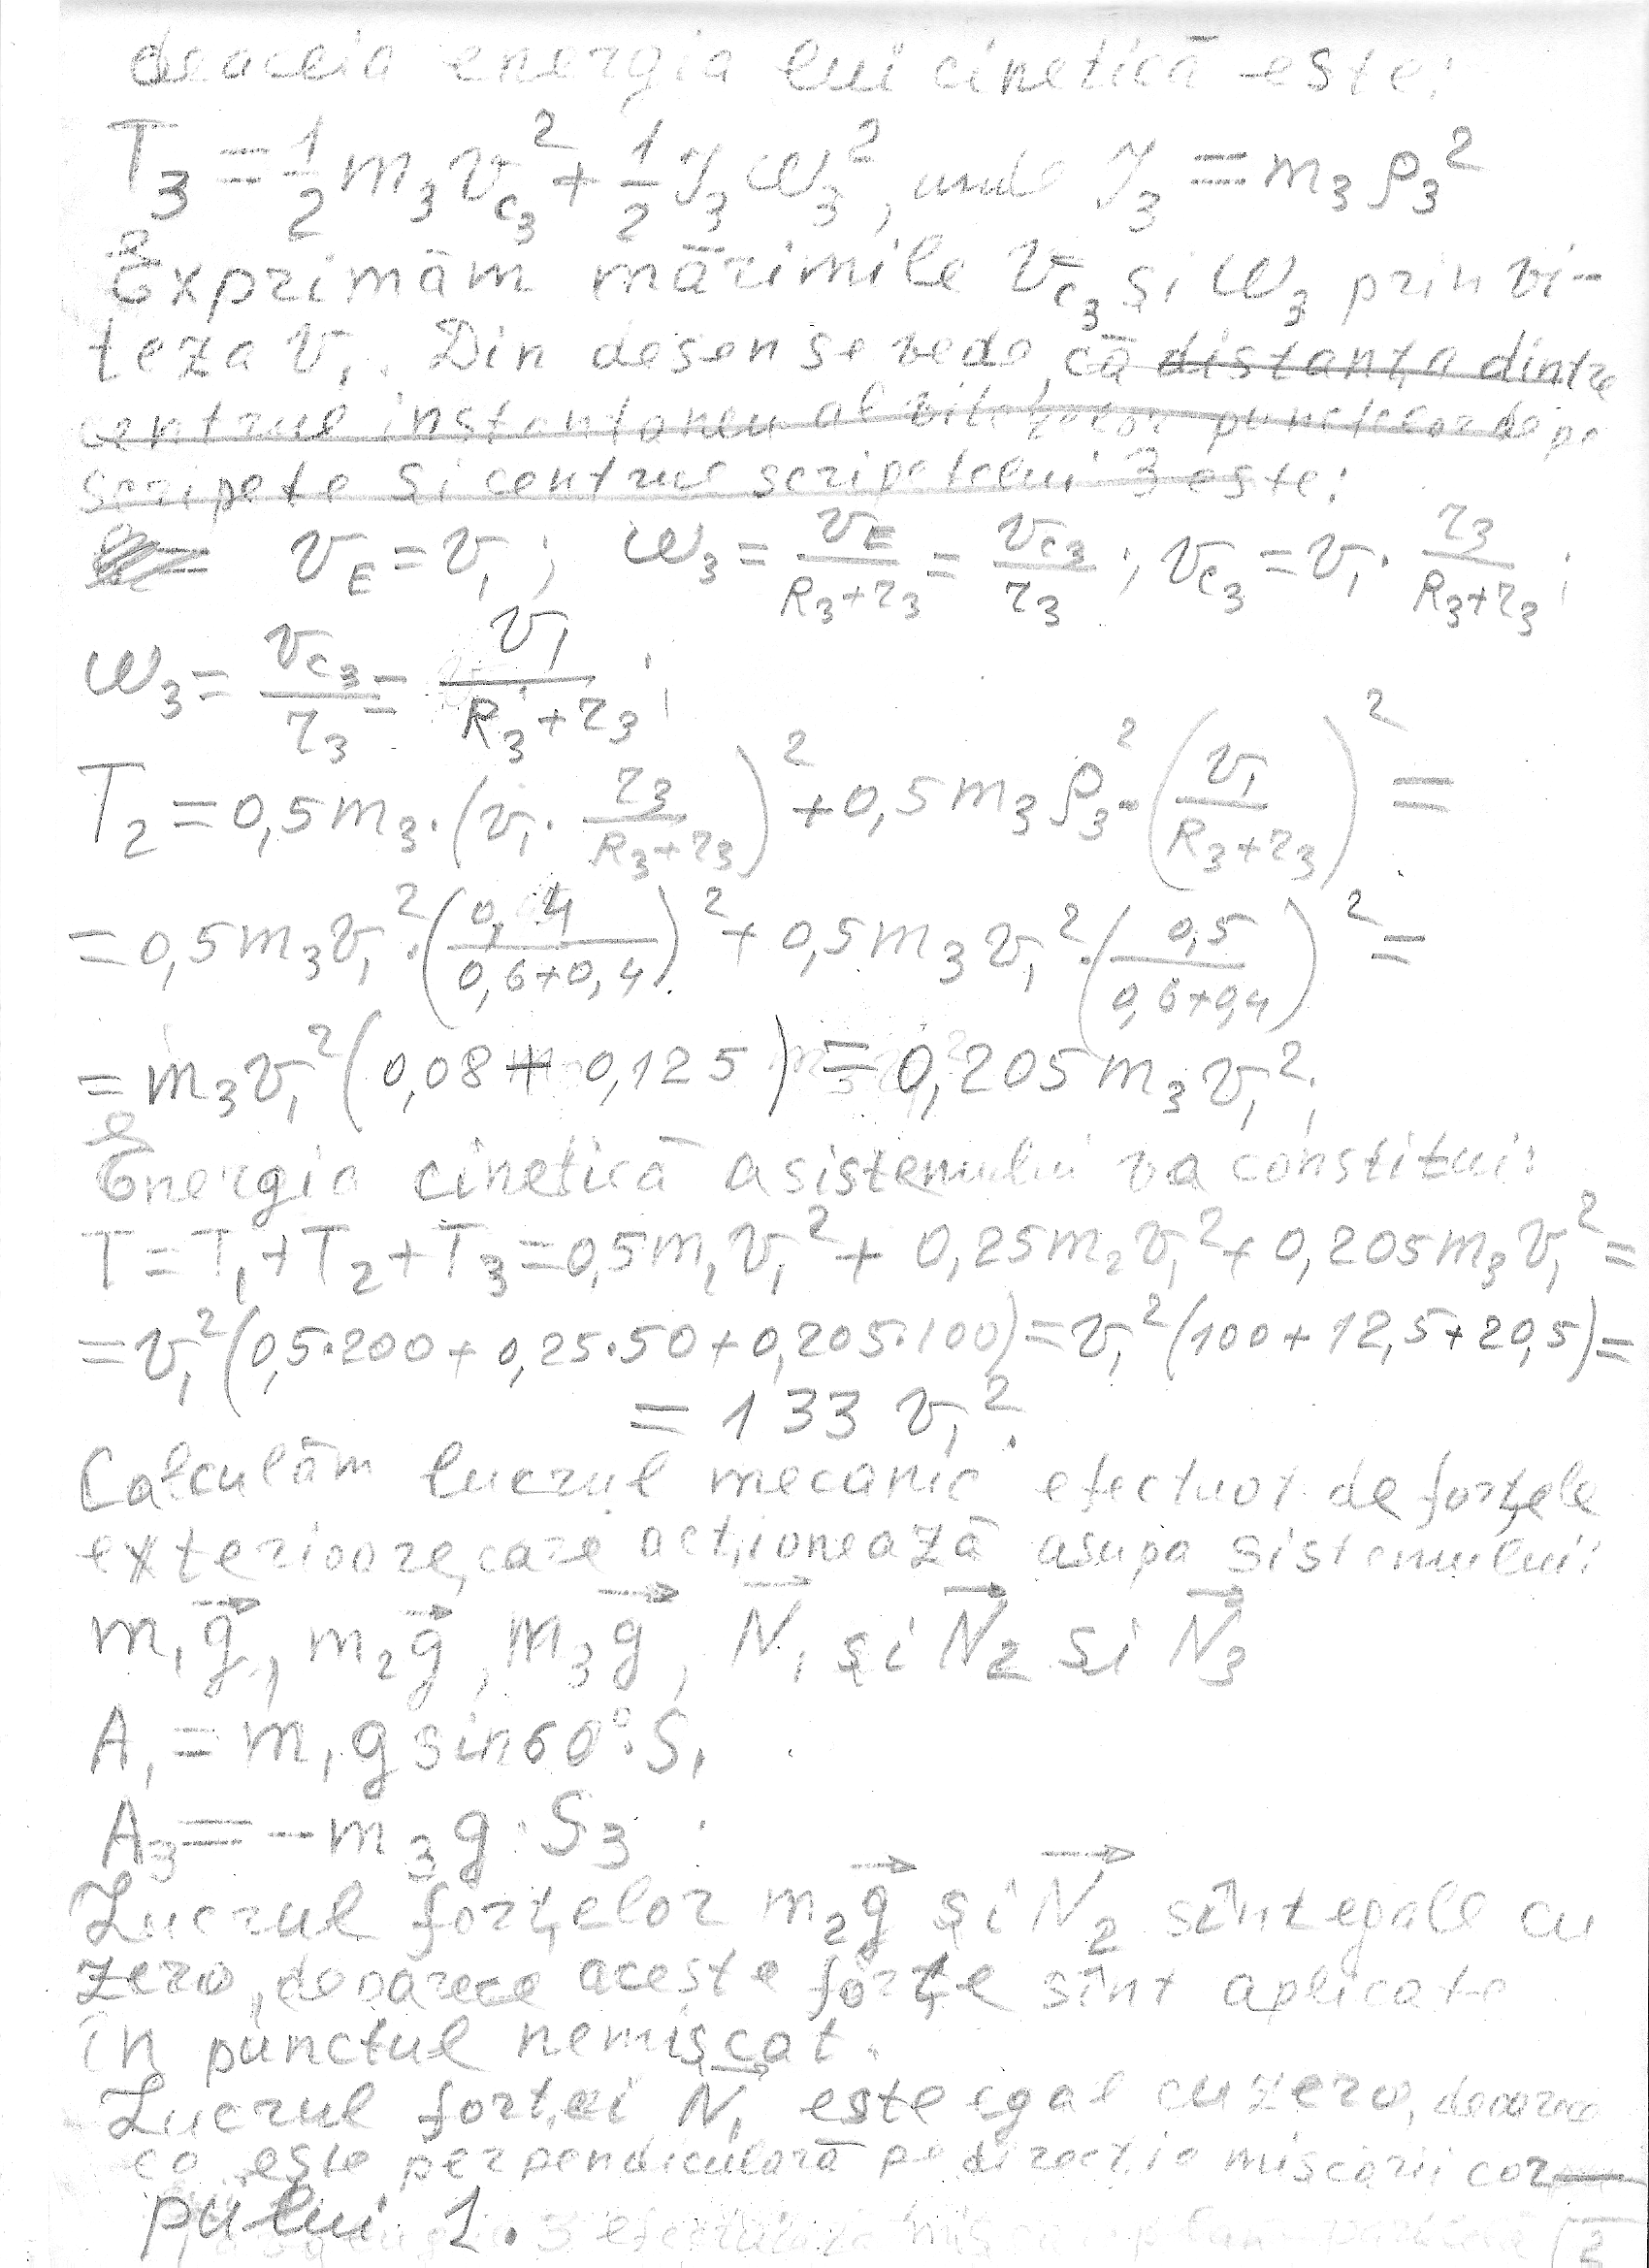 deaceia energia lui cinetică este:
T₃ = 1/2 m₃ v_c₃² + 1/2 J₃ ω₃², unde J₃ = m₃ ρ₃²
Exprimăm mărimile v_c₃ și ω₃ prin vi-
teza v₁. Din desen se vede, că distanța dintre
centrul instantaneu al vitezelor punctelor de pe
scripete și centrul scripetelui 3 este:
v_E = v₁; ω₃ = v_E/(R₃+r₃) = v_c₃/r₃; v_c₃ = v₁ · r₃/(R₃+r₃);
ω₃ = v_c₃/r₃ = v₁/(R₃+r₃);
T₂ = 0,5 m₃ · (v₁ · r₃/(R₃+r₃))² + 0,5 m₃ ρ₃² · (v₁/(R₃+r₃))² =
= 0,5 m₃ v₁² · (0,4/(0,6+0,4))² + 0,5 m₃ v₁² · (0,5/(0,6+0,4))² =
= m₃ v₁² (0,08 + 0,125) = 0,205 m₃ v₁²;
Energia cinetică a sistemului va constitui:
T = T₁ + T₂ + T₃ = 0,5 m₁ v₁² + 0,25 m₂ v₁² + 0,205 m₃ v₁² =
= v₁² (0,5·200 + 0,25·50 + 0,205·100) = v₁² (100 + 12,5 + 20,5) =
= 133 v₁².
Calculăm lucrul mecanic efectuat de forțele
exterioare, care acționează asupa sistemului:
m₁g⃗, m₂g⃗, m₃g⃗, N⃗₁ și N⃗₂ si N⃗₃
A₁ = m₁ g sin 60° · S₁
A₃ = - m₃ g · S₃
Lucrul forțelor m₂g⃗ și N⃗₂ sînt egale cu
zero, deoarece aceste forțe sînt aplicate
în punctul nemișcat.
Lucrul forței N⃗₁ este egal cu zero, deoarece
ea este perpendiculară pe direcția miscării cor
pului 1.